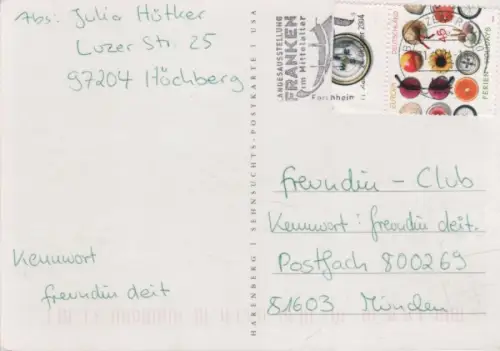 Abs: Julia Hütker
Luzer Str. 25
97204 Höchberg
LANDESAUSSTELLUNG
FRANKEN
im Mittelalter
Forchheim
DEUTSCHLAND
45
EUROPA
FERIEN
HARENBERG | SEHNSUCHTS-POSTKARTE | USA
freundin - Club
Kennwort: freundin deit.
Postfach 800269
81603 München
Kennwort
freundin deit